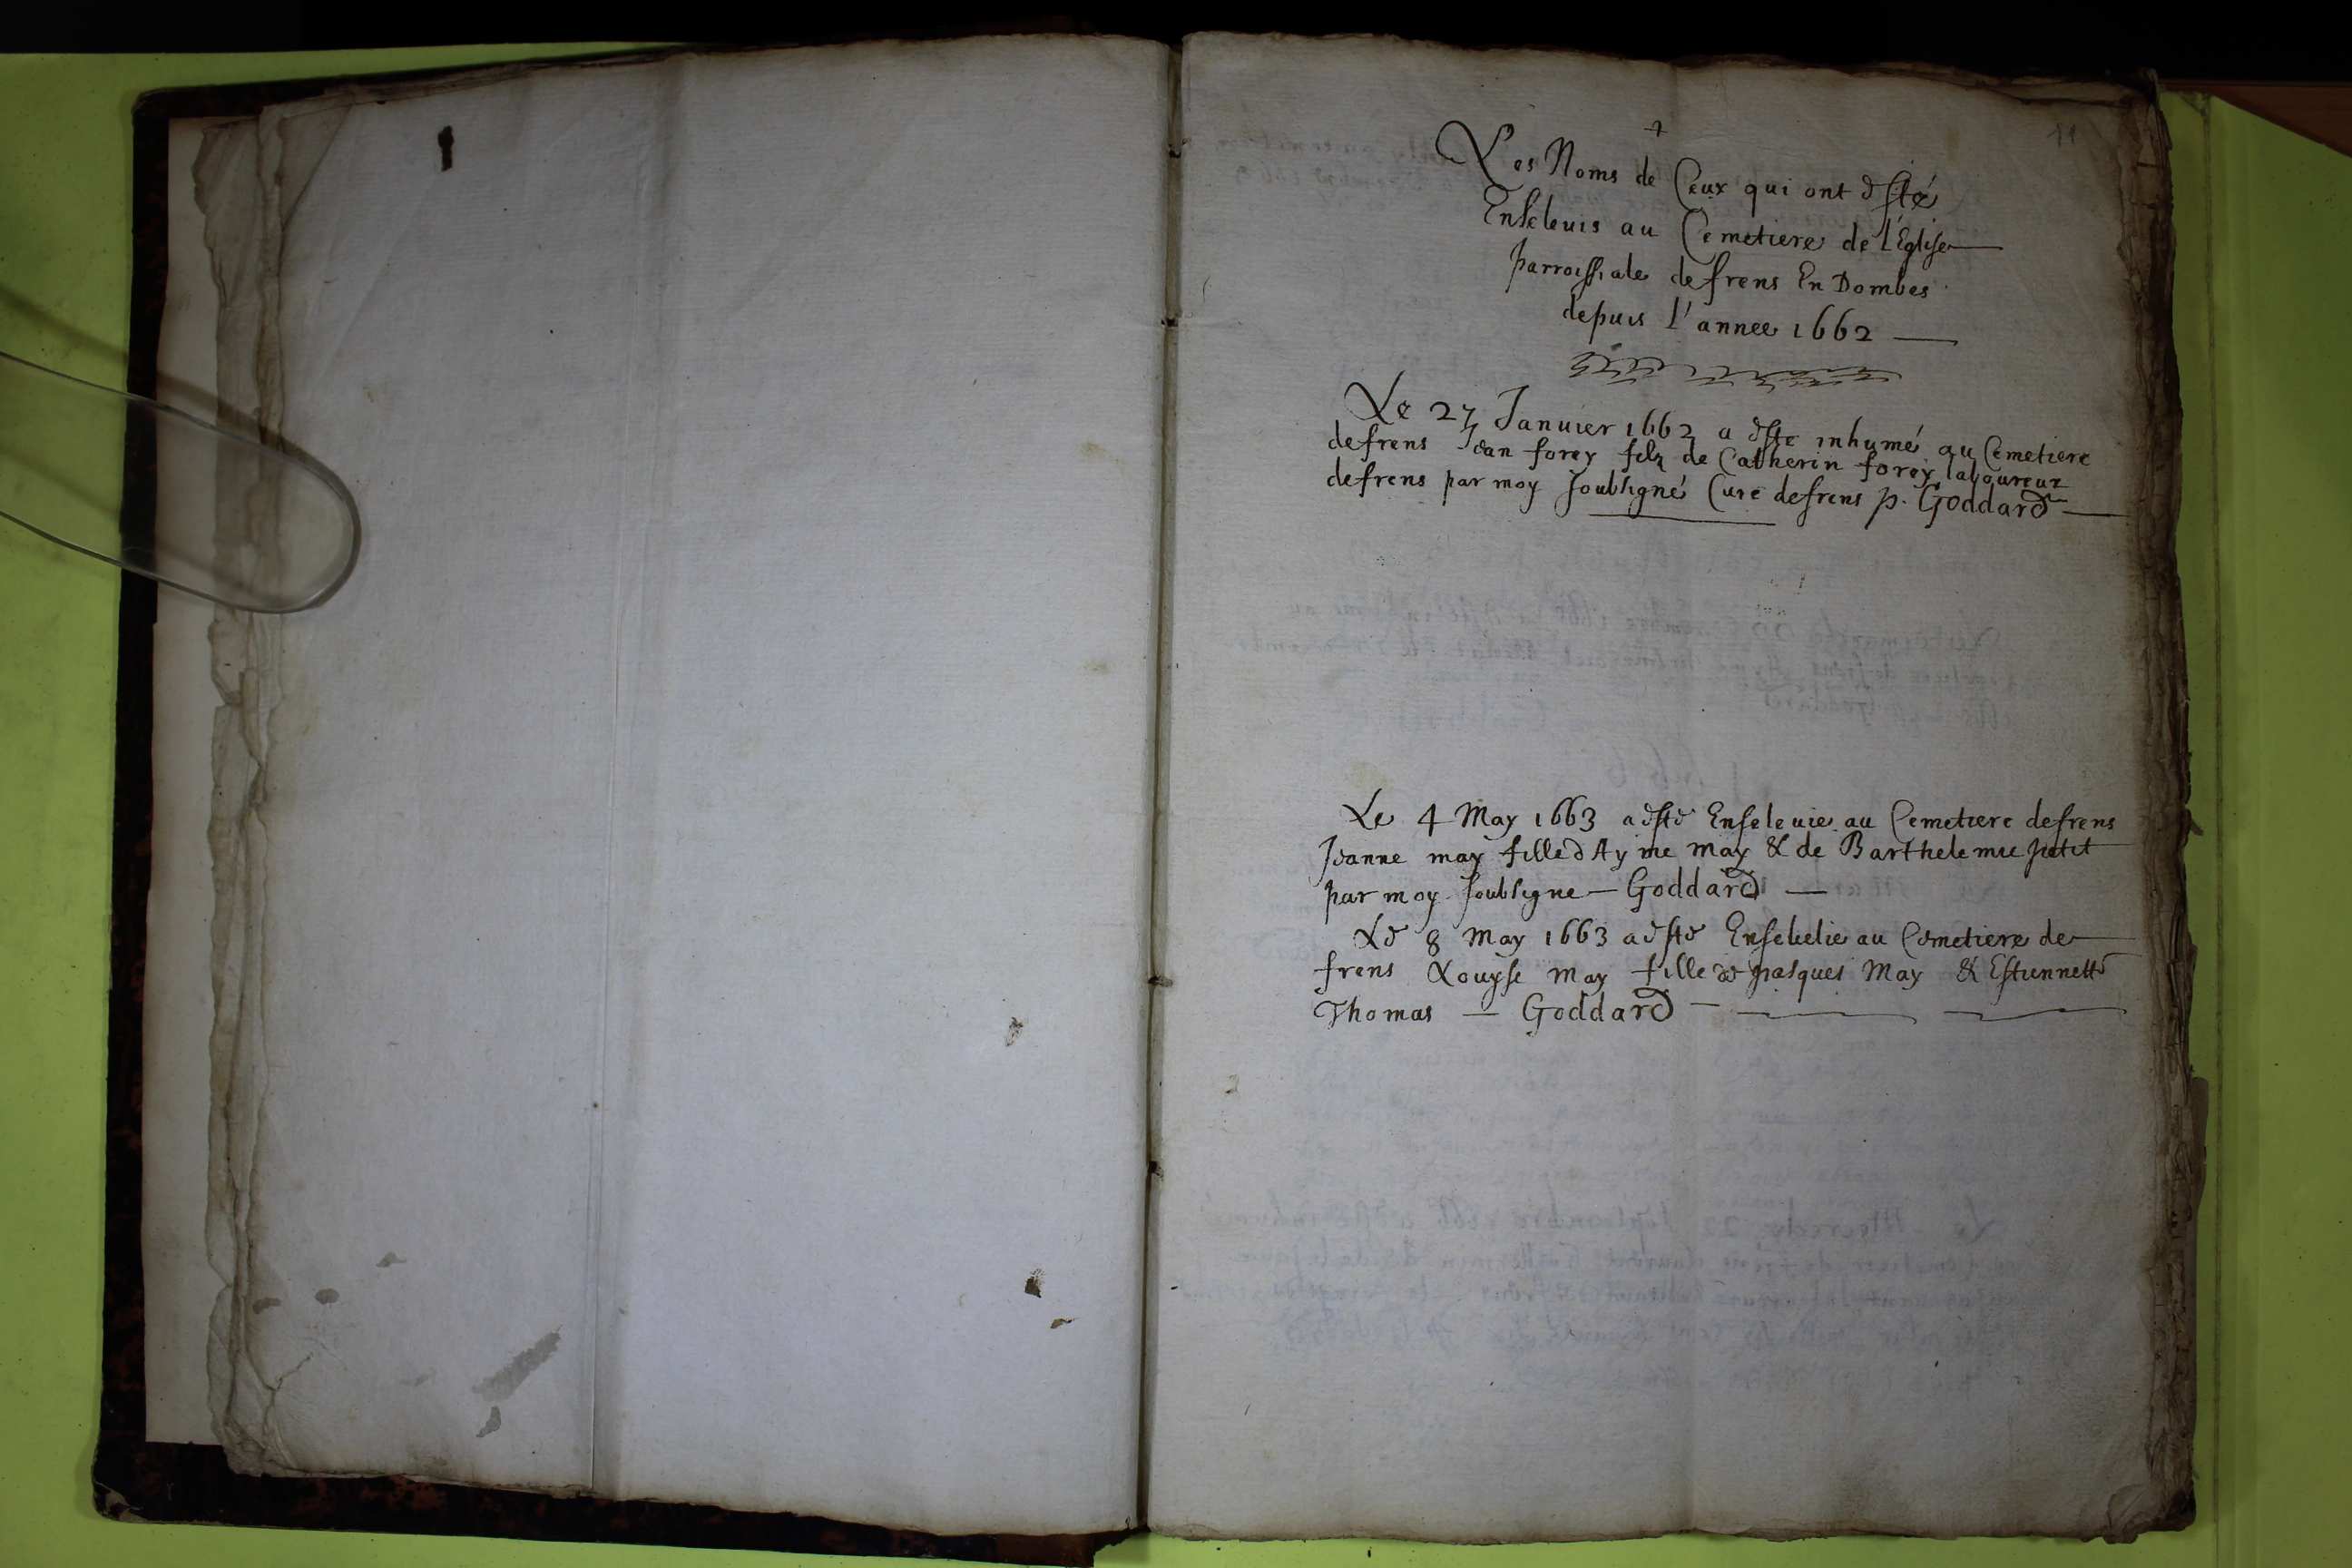 Les Noms de Ceux qui ont esté
Enseleuis au Cemetiere de l'Eglise
parroissiale de frens En Dombes
depuis l'annee 1662
Le 27 Januier 1662 a este inhumé au Cemetiere
de frens Jean forey filz de Catherin forey laboureur
de frens par moy soubsigné Curé de frens p. Goddard
Le 4 May 1663 a esté Enseleuie au Cemetiere de frens
Jeanne may fille d'Ayme may & de Barthelemie petit
par moy soubsigne Goddard
Le 8 May 1663 a esté Enseuelie au Cemetiere de
frens Louyse may fille de pasques May & Estiennette
Thomas Goddard